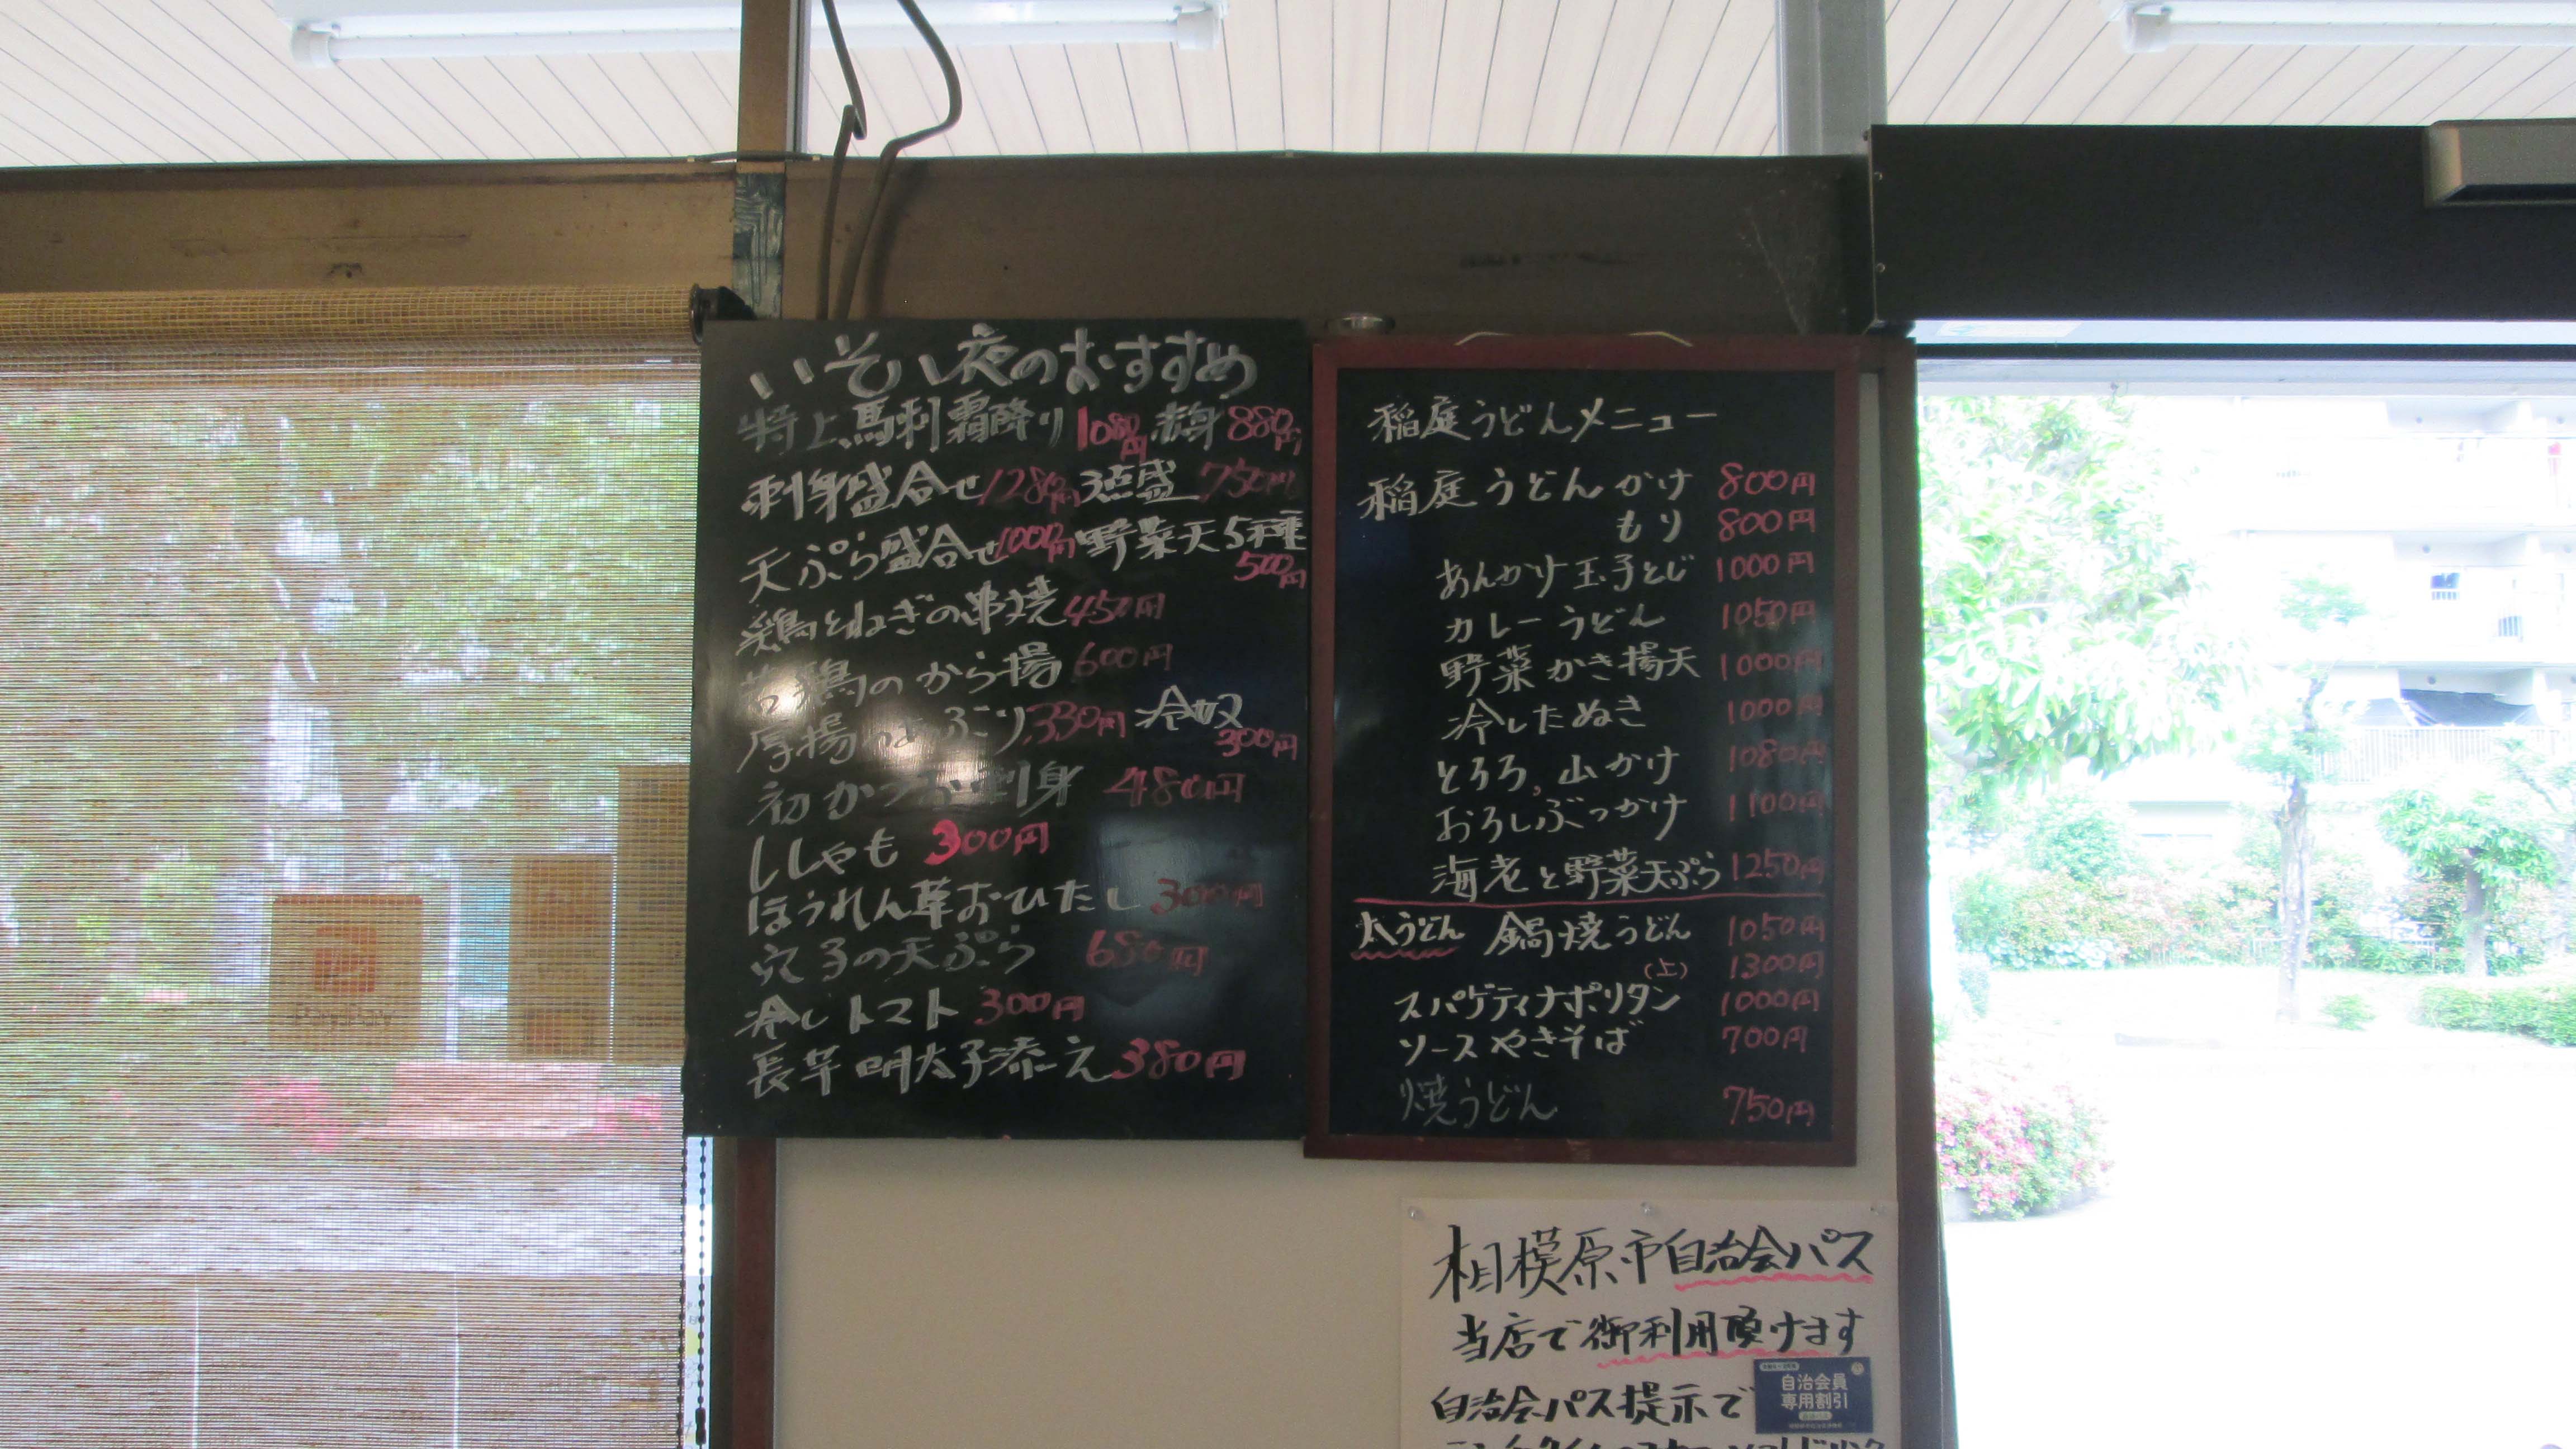 いそい夜のおすすめ
特上馬刺霜降り1080円 赤身880円
刺身盛合せ1280円 3点盛750円
天ぷら盛合せ1000円 野菜天5種
500円
鶏とねぎの串焼450円
若鶏のから揚600円
厚揚 330円 冷奴
300円
初かつお刺身 480円
ししゃも 300円
ほうれん草おひたし 300円
穴子の天ぷら 680円
冷しトマト 300円
長芋明太子添え380円
稲庭うどんメニュー
稲庭うどんかけ 800円
もり 800円
あんかけ玉子とじ 1000円
カレーうどん 1050円
野菜かき揚天 1000円
冷したぬき 1000円
とろろ,山かけ 1080円
おろしぶっかけ 1100円
海老と野菜天ぷら 1250円
太うどん 鍋焼うどん 1050円
(上) 1300円
スパゲティナポリタン 1000円
ソースやきそば 700円
焼うどん 750円
相模原市自治会パス
当店で御利用頂けます
自治会パス提示で
自治会員
専用割引